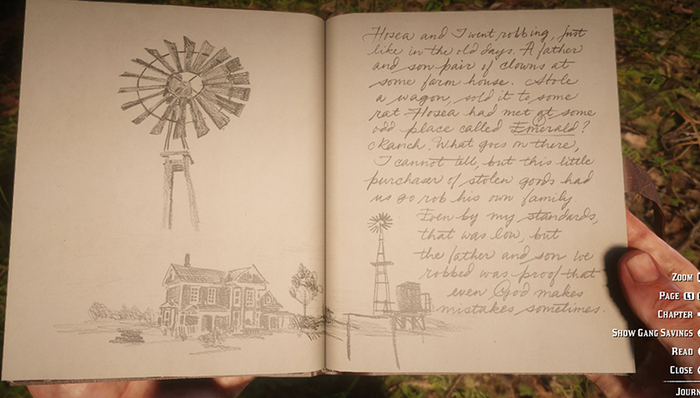 Hosea and I went robbing, just
like in the old days. A father
and son pair of clowns at
some farm house. Stole
a wagon, sold it to some
rat Hosea had met at some
odd place called Emerald?
Ranch. What goes on there,
I cannot tell, but this little
purchaser of stolen goods had
us go rob his own family
Even by my standards,
that was low, but
the father and son we
robbed was proof that
even God makes
mistakes sometimes.
ZOOM
PAGE
CHAPTER
SHOW GANG SAVINGS
READ
CLOSE
JOURN